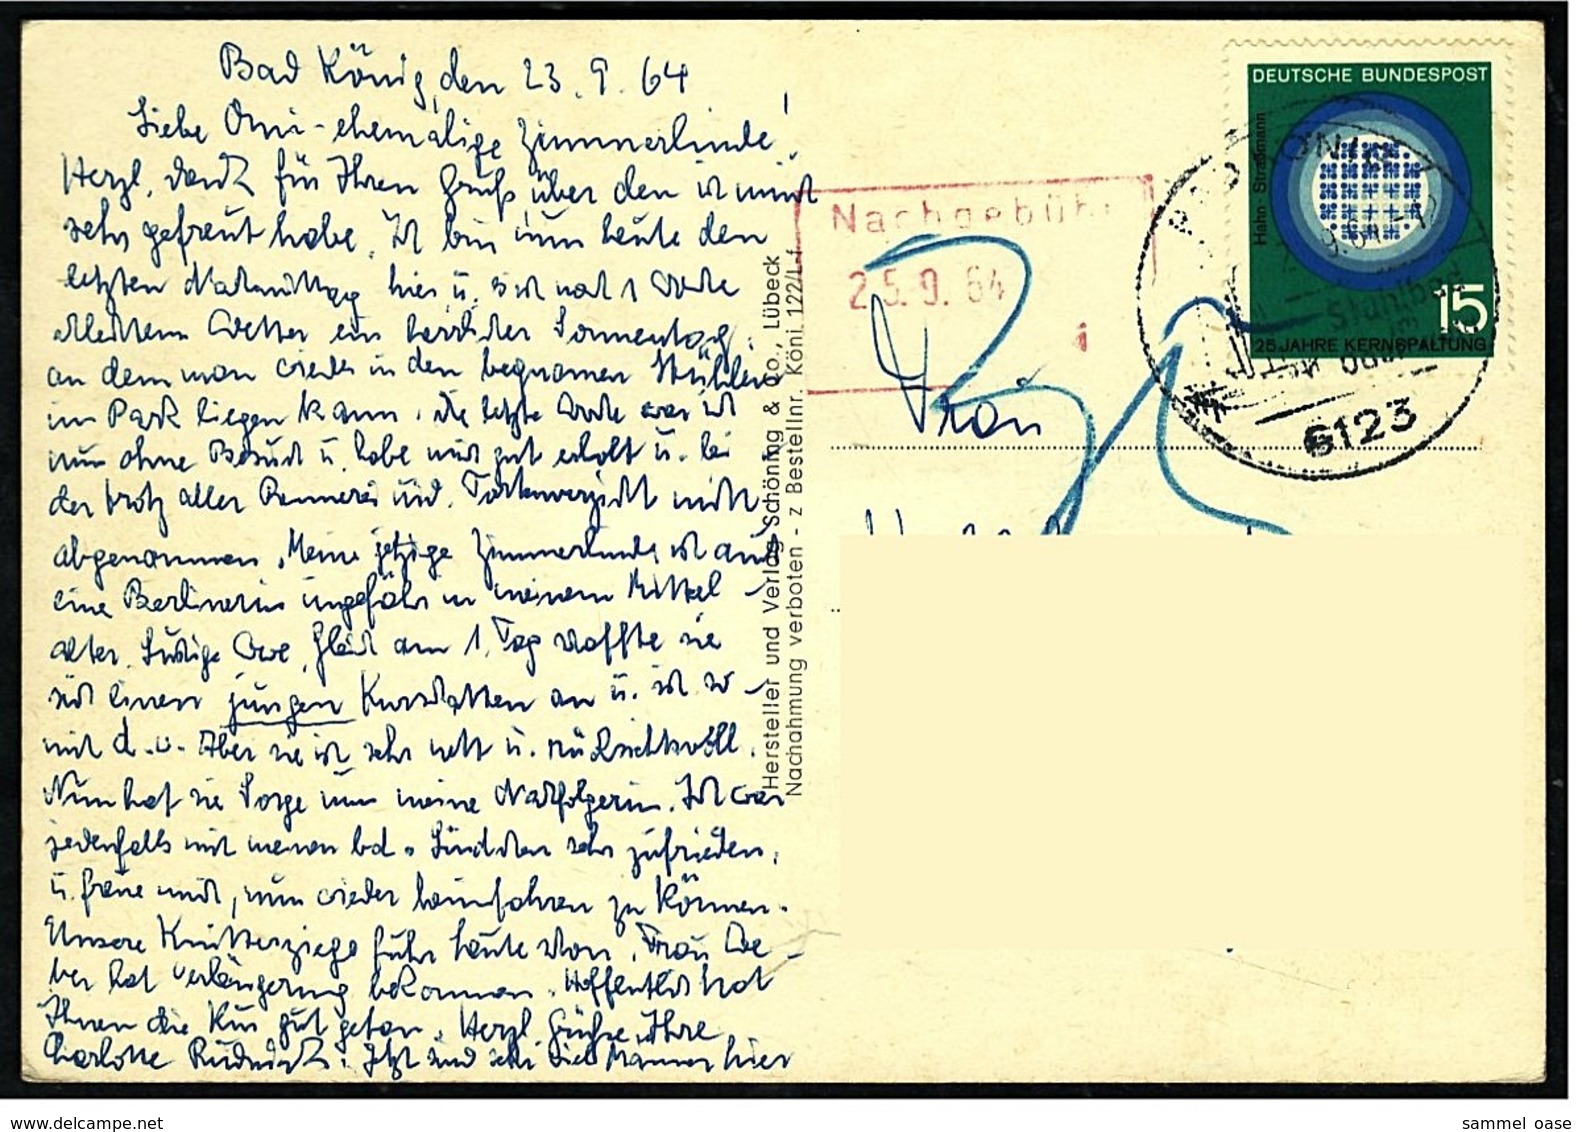 Bad König, den 23. 9. 64
Liebe Omi - ehemalige Zimmerlinde!
Herzl. Dank für Ihren Gruß über den ich mich
sehr gefreut habe. Ich bin nun heute den
letzten Nachmittag hier u. es ist nach 1 Woche
Wetter ein herrlicher Sonnentag,
an dem man wieder in den bequemen Stühlen
im Park liegen kann. die letzte Woche war ich
nun ohne Besuch u. habe mich gut erholt u. bei
der trotz aller Rennerei und Tortenverzicht nicht
abgenommen. Meine jetzige Zimmerlinde ist auch
eine Berlinerin ungefähr in meinem Mittel-
alter. Lustige Gleich am 1. Tag schaffte sie
sich einen jungen Kurschatten an u. ist so
mit d. u. Aber sie ist sehr nett u. rücksichtsvoll.
Nun hat sie Sorge um meine Nachfolgerin. Ich war
jedenfalls mit meinen bd. sehr zufrieden,
u. freue mich, nun wieder heimfahren zu können.
Unsere Knitterziege fuhr heute schon, Frau We-
ber hat Verlängerung bekommen. Hoffentlich hat
Ihnen die Kur gut getan. Herzl. Grüße, Ihre
Charlotte Jetzt sind sehr viel Männer hier
Hersteller und Verlag Schöning & Co., Lübeck
Nachahmung verboten - z Bestellnr. Köni 122/L f
Nachgebühr
25. 9. 64
Frau
DEUTSCHE BUNDESPOST
Hahn - Straßmann
15
25 JAHRE KERNSPALTUNG
BAD KÖNIG
6123
www.delcampe.net
sammel_oase